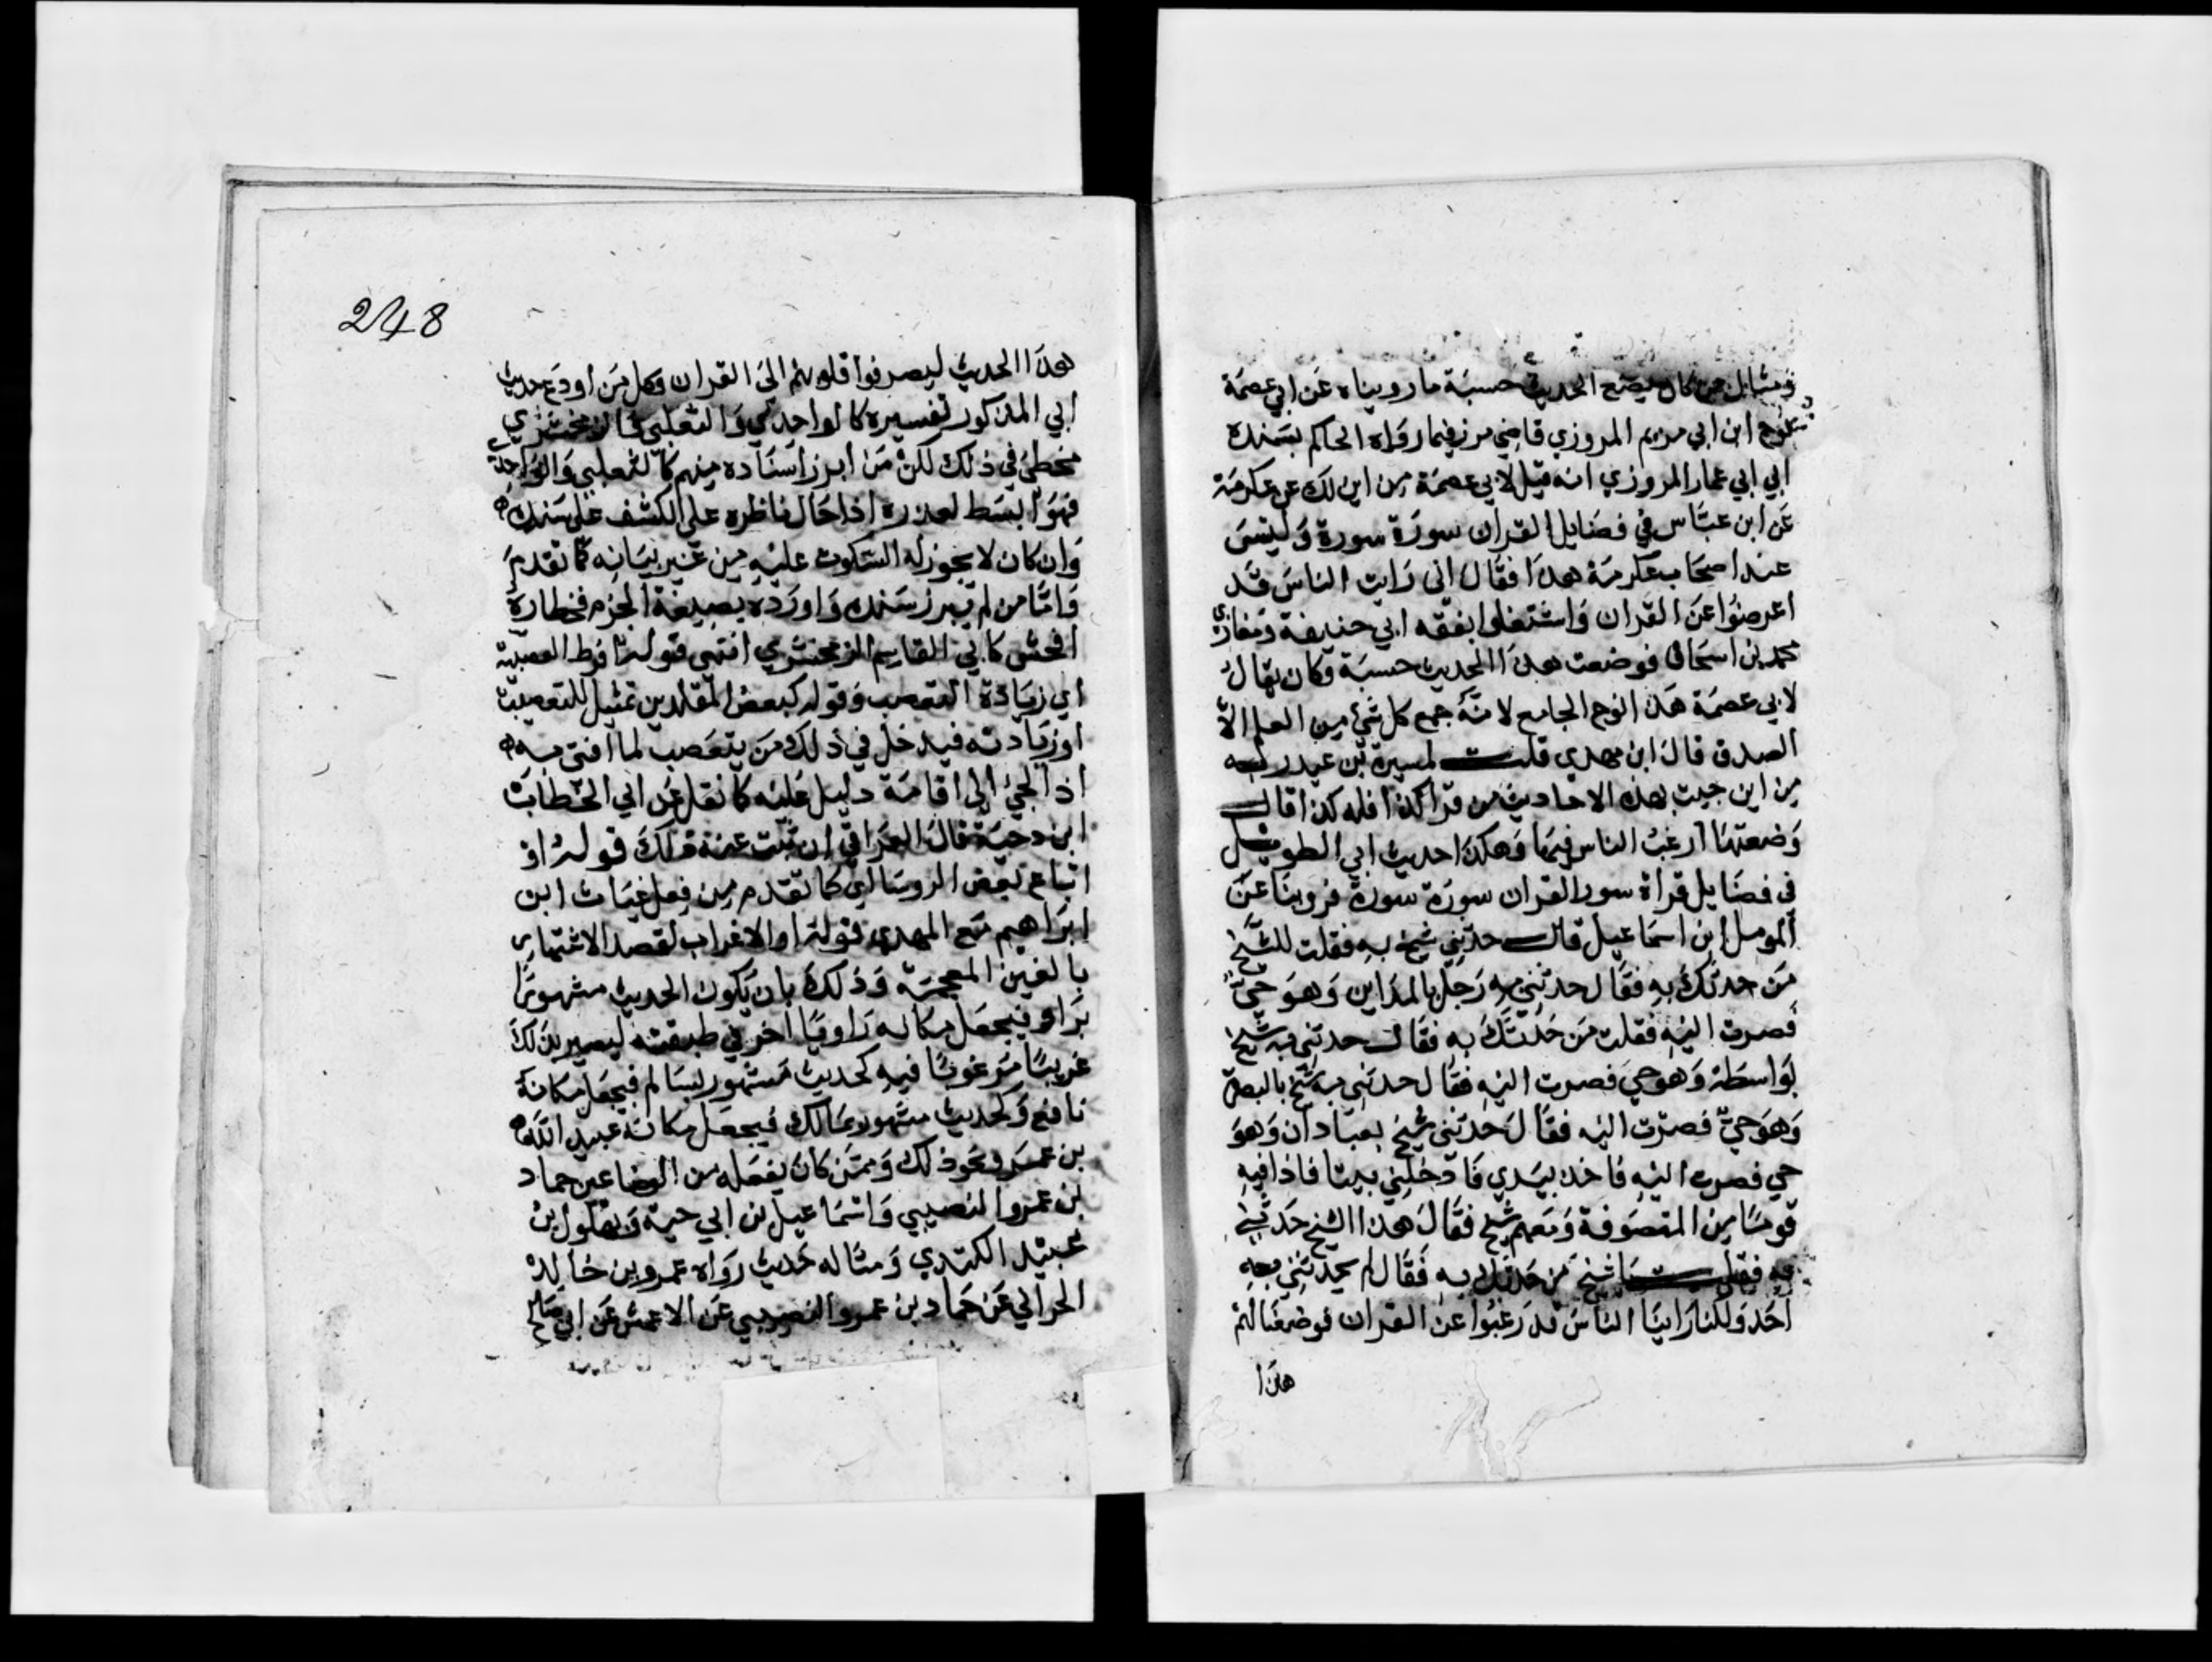 ومثال من كان يضع الحديث حسبة ما رويناه عن ابي عصمة
نوح ابن ابي مريم المروزي قاضي مرو فيما رواه الحاكم بسنده
الي ابي عمار المروزي انه قيل لابي عصمة من اين لك عن عكرمة
عن ابن عباس في فضايل القران سورة سورة وليس
عند اصحاب عكرمة هذا فقال اني رايت الناس قد
اعرضوا عن القران واشتغلوا بفقه ابي حنيفة ومغازي
محمد بن اسحاق فوضعت هذا الحديث حسبة وكان يقال
لابي عصمة هذا نوح الجامع لانه جمع كل شي من العلم الا
الصدق قال ابن مهدي قلت لميسرة بن عبد ربه
من اين جيت بهذه الاحاديث من قرا كذا فله كذا قال
وضعتها ارغب الناس فيها وهكذا حديث ابي الطويل
في فضايل قراة سور القران سورة سورة فروينا عن
المومل ابن اسماعيل قال حدثني شيخ به فقلت للشيخ
من حدثك به فقال حدثني به رجل بالمداين وهو حي
فصرت اليه فقلت من حدثك به فقال حدثني به شيخ
بواسطة وهو حي فصرت اليه فقال حدثني به شيخ بالبصرة
وهو حي فصرت اليه فقال حدثني شيخ بعبادان وهو
حي فصرت اليه فاخذ بيدي فادخلني بيتا فاذا فيه
قوما من المتصوفة ومعهم شيخ فقال هذا الشيخ حدثني
به فقلت يا شيخ من حدثك به فقال لم يحدثني به
احد ولكنا راينا الناس قد رغبوا عن القران فوضعنا لهم
هذا
248
هذا الحديث ليصرفوا قلوبهم الى القران وكل من اودع حديث
ابي المذكور تفسيره كالواحدي والثعلبي والزمخشري
مخطئ في ذلك لكن من ابرز اسناده منهم كالثعلبي والواحدي
فهو ابسط لعذره اذا حال ناظره على الكشف على سنده
وان كان لا يجوز له السكوت عليه من غير بيانه كما تقدم
واما من لم يبرز سنده واورده بصيغة الجزم فخطاره
افحش كابي القاسم الزمخشري انتهى قوله فرط العصبية
اي زيادة التعصب وقوله كبعض المقلدين تمثيل للتعصب
او زيادته فيدخل في ذلك من يتعصب لما افتى به
اذا الجئ الى اقامة دليل عليه كما نقل عن ابي الخطاب
ابن دحية قال العراقي ان ثبت عنه ذلك قوله او
اتباع بعض الروسا اي كما تقدم من فعل غياث ابن
ابراهيم مع المهدي قوله او الاغراب لقصد الاشتهار
بالغين المعجمة وذلك بان يكون الحديث مشهورا
براو فيجعل مكانه راويا اخر في طبقته ليصير بذلك
غريبا مرغوبا فيه كحديث مشهور بسالم فيجعل مكانه
نافع وكحديث مشهور بمالك فيجعل مكانه عبيد الله
بن عمر ونحو ذلك وممن كان يفعله من الوضاعين حماد
بن عمرو النصيبي واسماعيل بن ابي حية وبهلول بن
عبيد الكندي ومثاله حديث رواه عمرو بن خالد
الحراني عن حماد بن عمرو النصيبي عن الاعمش عن ابي صالح